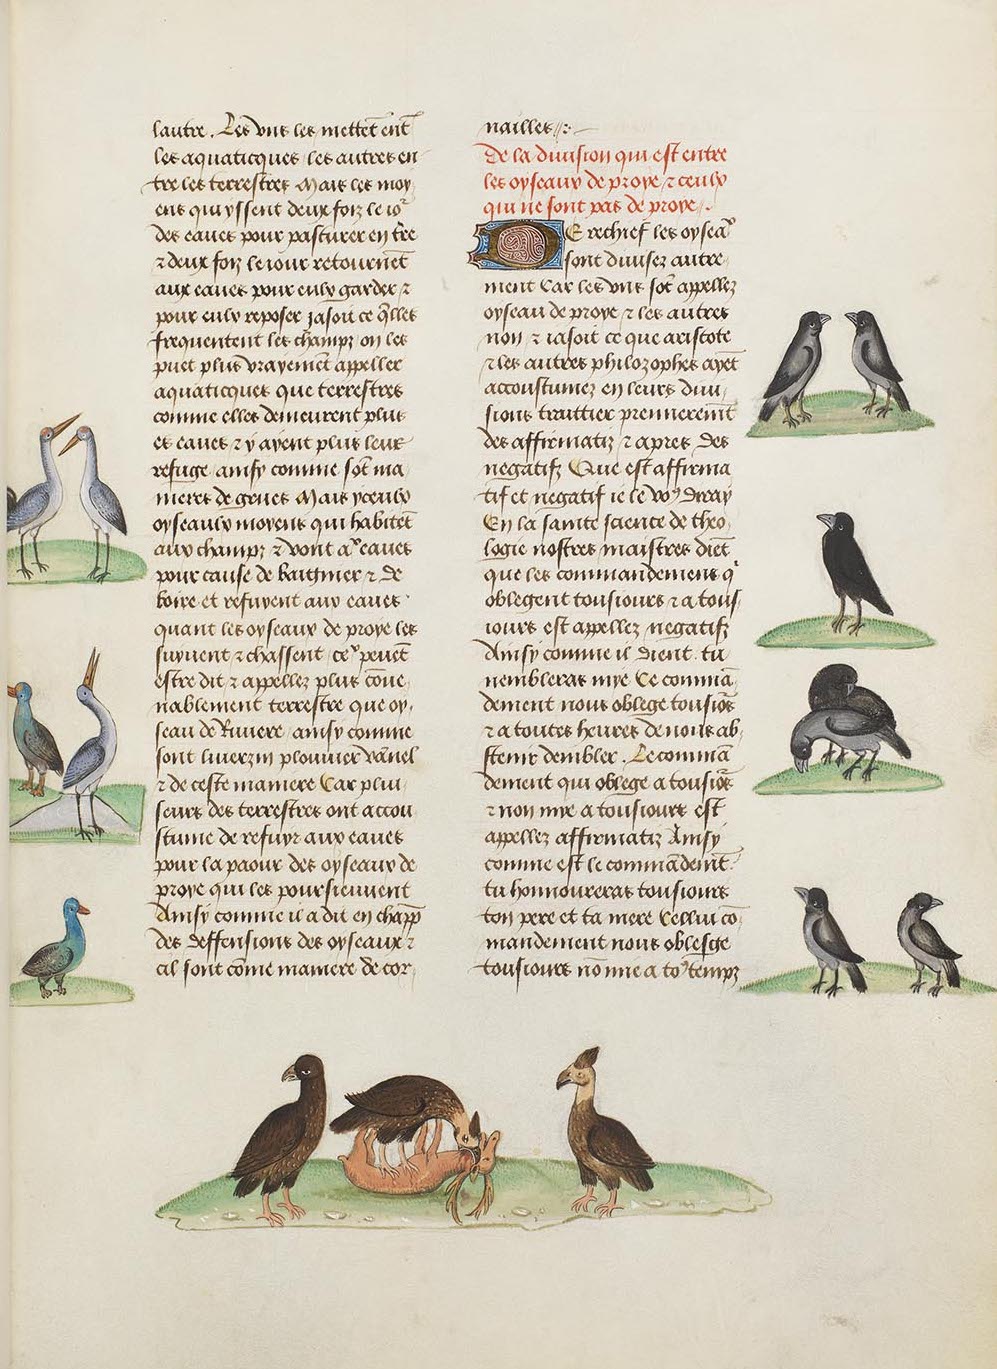 lautre. Les vns les mettẽt ent̃
les aquaticques les autres en
tre les terrestres Mais les moy
ens qui yssent deux foiz le io᷑
des eaues pour pasturer en t̃re
⁊ deux foiz le iour retournẽt
aux eaues pour eulx garder ⁊
pour eulx reposer Jasoit ce q̃lles
frequentent les champz on les
puet plus vrayemẽt appeller
aquaticques que terrestres
comme elles demeurent plus
es eaues ⁊ y ayent plus leur
refuge ainsy comme sõt ma
nieres de grues Mais yceulx
oyseaulx moyens qui habitẽt
aux champz ⁊ vont aˣ eaues
pour cause de baignier ⁊ de
boire et refuyent aux eaues
quant les oyseaux de proye les
suyuent ⁊ chassent ceˣ peuẽt
estre dit ⁊ appellez plus cõue
nablement terrestre que oy
seau de Riuiere ainsy comme
sont plouuier vãnel
⁊ de ceste maniere Car plui
seurs des terrestres ont accou
stume de refuyr aux eaues
pour la paour des oyseaux de
proye qui les poursieuuent
Ainsy comme il a dit en chapp̃
des deffensions des oyseaux ⁊
cil sont cõme maniere de cor
nailles
De la diuision qui est entre
les oyseaux de proye ⁊ ceulx
qui ne sont pas de proye.
DErechief les oyseaˣ
sont diuisez autre
ment Car les vns sõt appellez
oyseau de proye ⁊ les autres
non ⁊ iasoit ce que aristote
⁊ les autres philozophes ayẽt
accoustumez en leurs diui
sions traittier premieremẽt
des affirmatiz ⁊ apres des
negatifz Que est affirma
tif et negatif ie le voꝰ diray
En la sainte science de theo
logie nostres maistres diẽt
que les commandemens q̃
oblegent tousiours ⁊ a tous
iours est appellez negatifz
Ainsy comme il dient tu
nembleras mye Ce commã
dement nous oblege tousio᷑s
⁊ a toutes heures de nous ab
stenir dembler. Le commã
dement qui oblege a tousio᷑s
⁊ non mye a tousiours est
appellez affirmatiz Ainsy
comme est le commãdemt̃
tu honnoureras tousiours
ton pere et ta mere Cellui cõ
mandement nous oblesge
tousiours nõ mie a toꝰ tempz